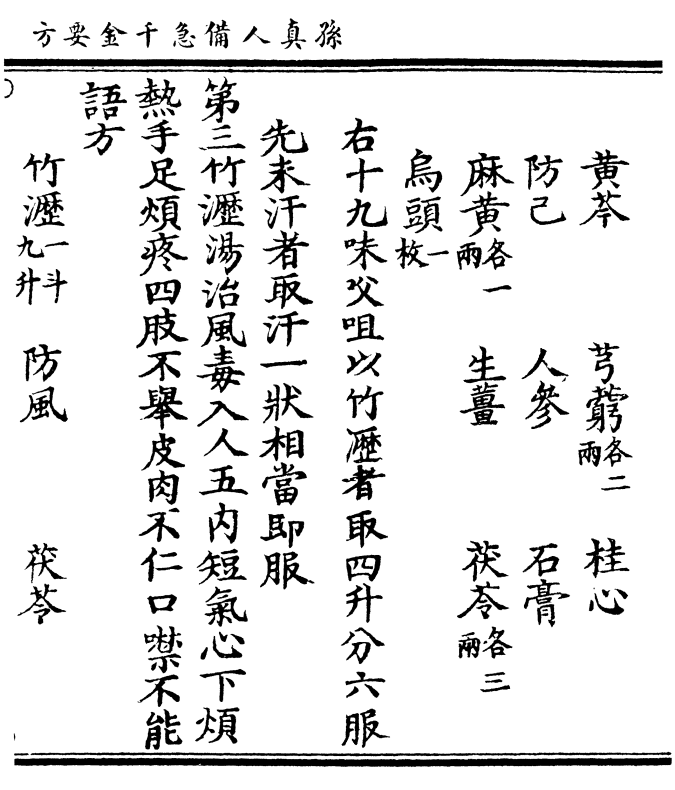 孫真人備急千金要方
黄芩 芎藭各二兩 桂心
防己 人參 石膏
麻黄各一兩 生薑 茯苓各三兩
烏頭一枚
右十九味㕮咀以竹瀝煮取四升分六服
先未汗者取汗一狀相當即服
第三竹瀝湯治風毒入人五内短氣心下煩
熱手足煩疼四肢不舉皮肉不仁口噤不能
語方
竹瀝一斗九升 防風 茯苓